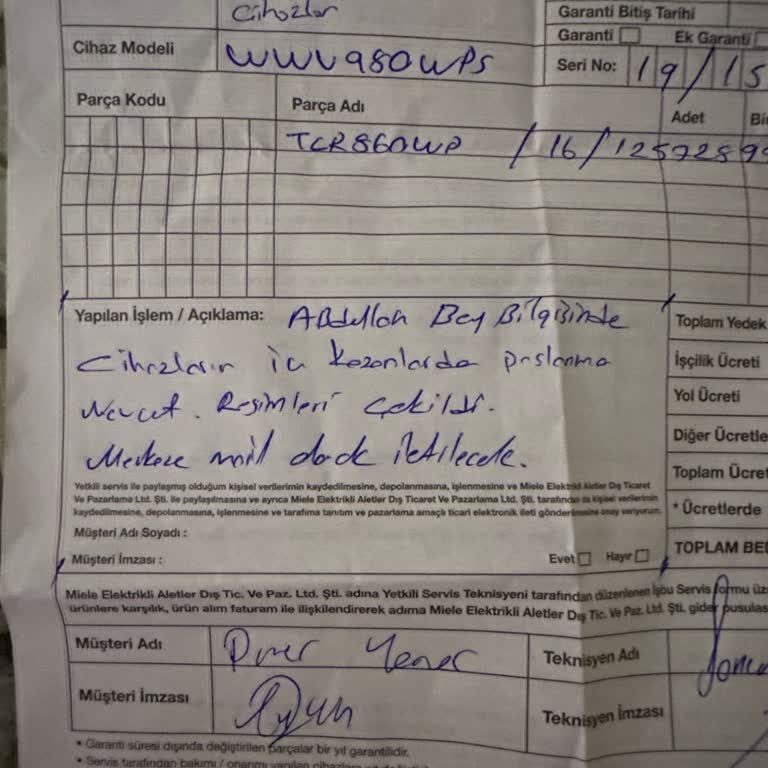 Cihazlar
Garanti Bitiş Tarihi
Garanti Ek Garanti
Cihaz Modeli WWV980WPS Seri No: 19/15
Parça Kodu Parça Adı Adet Bi
TCR860WP /16/1257289
Yapılan İşlem / Açıklama: Abdullah Bey Bilgisinde
Cihazların iç kazanlarda paslanma
Mevcut. Resimleri çekildi.
Merkeze mail olarak iletilecek.
Toplam Yedek
İşçilik Ücreti
Yol Ücreti
Diğer Ücretle
Toplam Ücret
* Ücretlerde
TOPLAM BED
Yetkili servis ile paylaşmış olduğum kişisel verilerimin kaydedilmesine, depolanmasına, işlenmesine ve Miele Elektrikli Aletler Dış Ticaret
Ve Pazarlama Ltd. Şti. ile paylaşılmasına ve ayrıca Miele Elektrikli Aletler Dış Ticaret Ve Pazarlama Ltd. Şti. tarafından da kişisel verilerimin
kaydedilmesine, depolanmasına, işlenmesine ve tarafıma tanıtım ve pazarlama amaçlı ticari elektronik ileti gönderilmesine onay veriyorum.
Müşteri Adı Soyadı :
Müşteri İmzası : Evet Hayır
Miele Elektrikli Aletler Dış Tic. Ve Paz. Ltd. Şti. adına Yetkili Servis Teknisyeni tarafından düzenlenen İşbu Servis formu üz
ürünlere karşılık, ürün alım faturam ile ilişkilendirerek adıma Miele Elektrikli Aletler Dış Tic. Ve Paz. Ltd. Şti. gider pusulas
Müşteri Adı Teknisyen Adı
Müşteri İmzası Teknisyen İmzası
* Garanti süresi dışında değiştirilen parçalar bir yıl garantilidir.
* Servis tarafından bakımı / onarımı yapılan